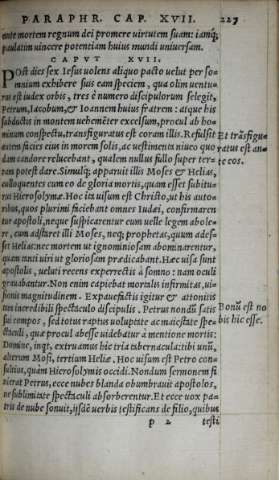 PARAPHR. CAP. XVII. 227
ente mortem regnum dei promere virtutem suam: iamq;
paulatim vincere potentiam huius mundi universam.
CAPVT XVII.
POst dies sex Iesus volens aliquo pacto uelut per so-
mnium exhibere suis eam speciem, qua olim uentu-
rus est iudex orbis, tres è numero discipulorum selegit,
Petrum, Iacobum, & Ioannem huius fratrem: atque his
subductis in montem uehemẽter excelsum, procul ab ho-
minum conspectu, transfiguratus est coram illis. Refulsit
autem facies eius in morem solis, ac uestimenta niueo quo
dam candore relucebant, qualem nullus fullo super ter-
ram potest dare. Simulq; apparuit illis Moses & Helias,
colloquentes cum eo de gloria mortis, quam esset subitu-
rus Hierosolymæ. Hoc itẽ uisum est Christo, ut his auto-
ribus, quos plurimi faciebant omnes Iudei, confirmaren
tur apostoli, neque suspicarentur eum uelle legem abole-
re, cum adstaret illi Moses, neq; prophetas, quum ades-
set Helias: nec mortem ut ignominiosam abominarentur,
quam tanti uiri ut gloriosam prædicabant. Hæc uisa sunt
apostolis, ueluti recens experrectis à somno: nam oculi
grauabantur. Non enim capiebat mortalis infirmitas, ui-
sionis magnitudinem. Expauefactis igitur & attonitis
tam incredibili spectaculo discipulis. Petrus nondũ satis
sui compos, sed totus raptus uoluptate ac maiestate spe-
ctaculi, quæ procul abesse uidebatur à mentione mortis:
Domine, inqt, extruamus hic tria tabernacula: tibi unũ,
alterum Mosi, tertium Heliæ. Hoc uisum est Petro con-
sultius, quàm Hierosolymis occidi. Nondum sermonem fi
nierat Petrus, ecce nubes blanda obumbrauit apostolos,
ne sublimitate spectaculi absorberentur. Et ecce uox pa-
tris de nube sonuit, ijsdẽ uerbis testificans de filio, quibus
p 2 testi
Et trãsfigu-
ratus est an-
te eos.
Bonũ est no
bis hic esse.